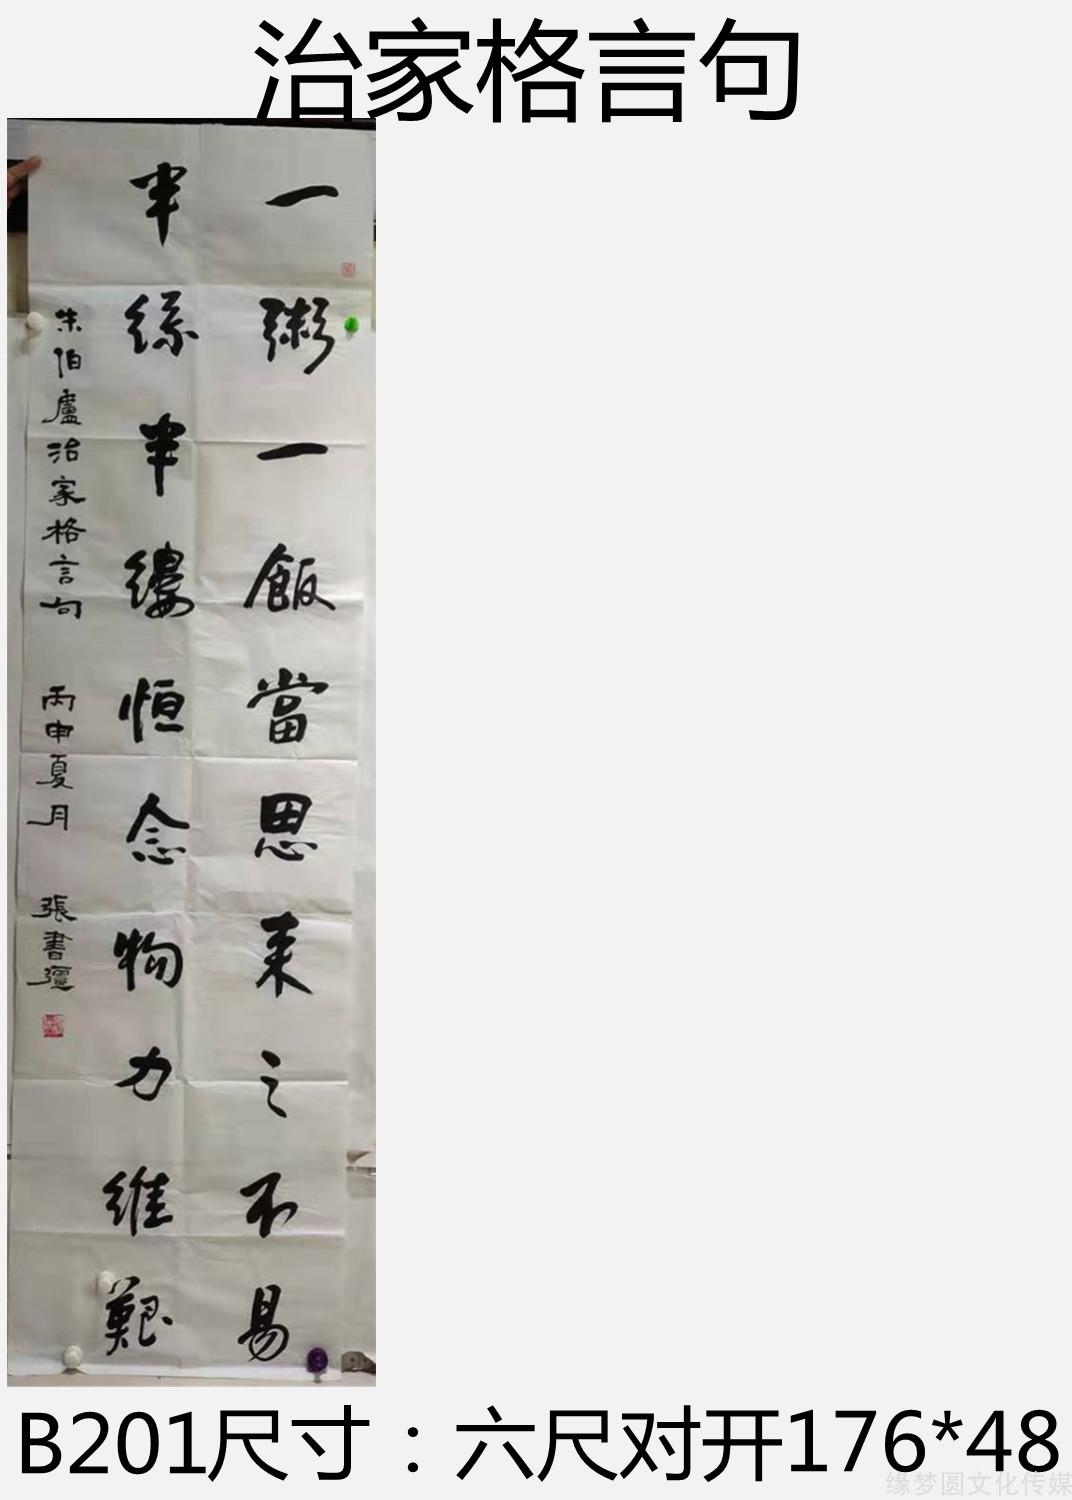 治家格言句
一粥一飯當思来之不易
半絲半縷恒念物力維艱
朱伯廬治家格言句 丙申夏月 張書
B201尺寸：六尺对开176*48
缘梦圆文化传媒